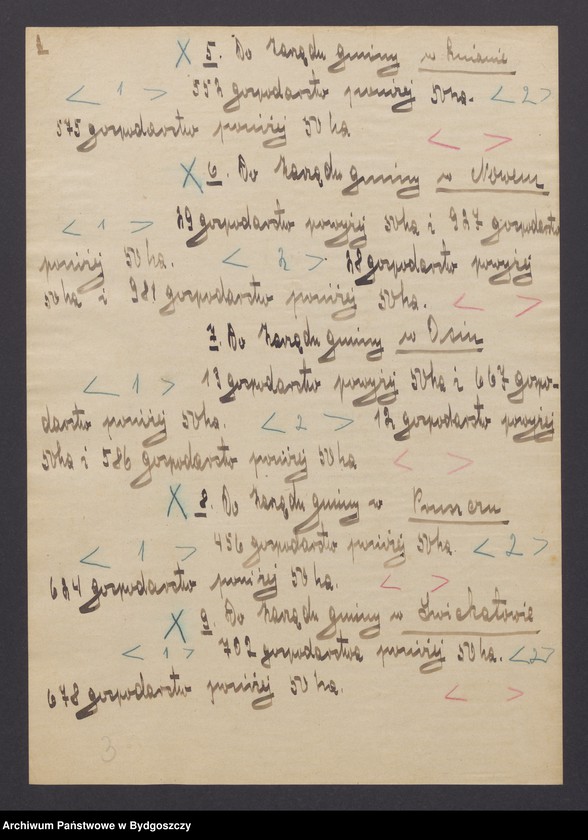 X 5. Do Zarządu gminy w
< 1 > 552 gospodarstw poniżej 50 ha. < 2 >
575 gospodarstw poniżej 50 ha < >
X 6. Do Zarządu gminy w Nowem
< 1 > 29 gospodarstw powyżej 50 ha i 927 gospodarstw
poniżej 50 ha. < 2 > 28 gospodarstw powyżej
50 ha i 981 gospodarstw poniżej 50 ha. < >
7. Do Zarządu gminy w Osiu
< 1 > 13 gospodarstw powyżej 50 ha i 667 gospo-
darstw poniżej 50 ha. < 2 > 12 gospodarstw powyżej
50 ha i 586 gospodarstw poniżej 50 ha < >
X 8. Do Zarządu gminy w Pruszczu
< 1 > 456 gospodarstw poniżej 50 ha. < 2 >
624 gospodarstw poniżej 50 ha. < >
X 9. Do Zarządu gminy w Świekatowie
< 1 > 702 gospodarstwa poniżej 50 ha. < 2 >
678 gospodarstw poniżej 50 ha. < >
3
Archiwum Państwowe w Bydgoszczy